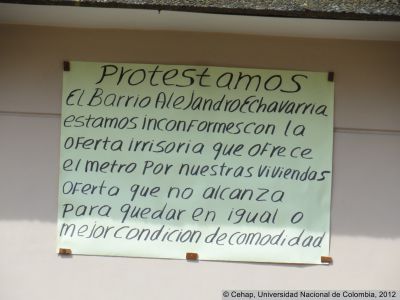 Protestamos
El Barrio Alejandro Echavarria
estamos inconformes con la
oferta irrisoria que ofrece
el metro por nuestras viviendas
oferta que no alcanza
para quedar en igual o
mejor condicion de comodidad
© Cehap, Universidad Nacional de Colombia, 2012